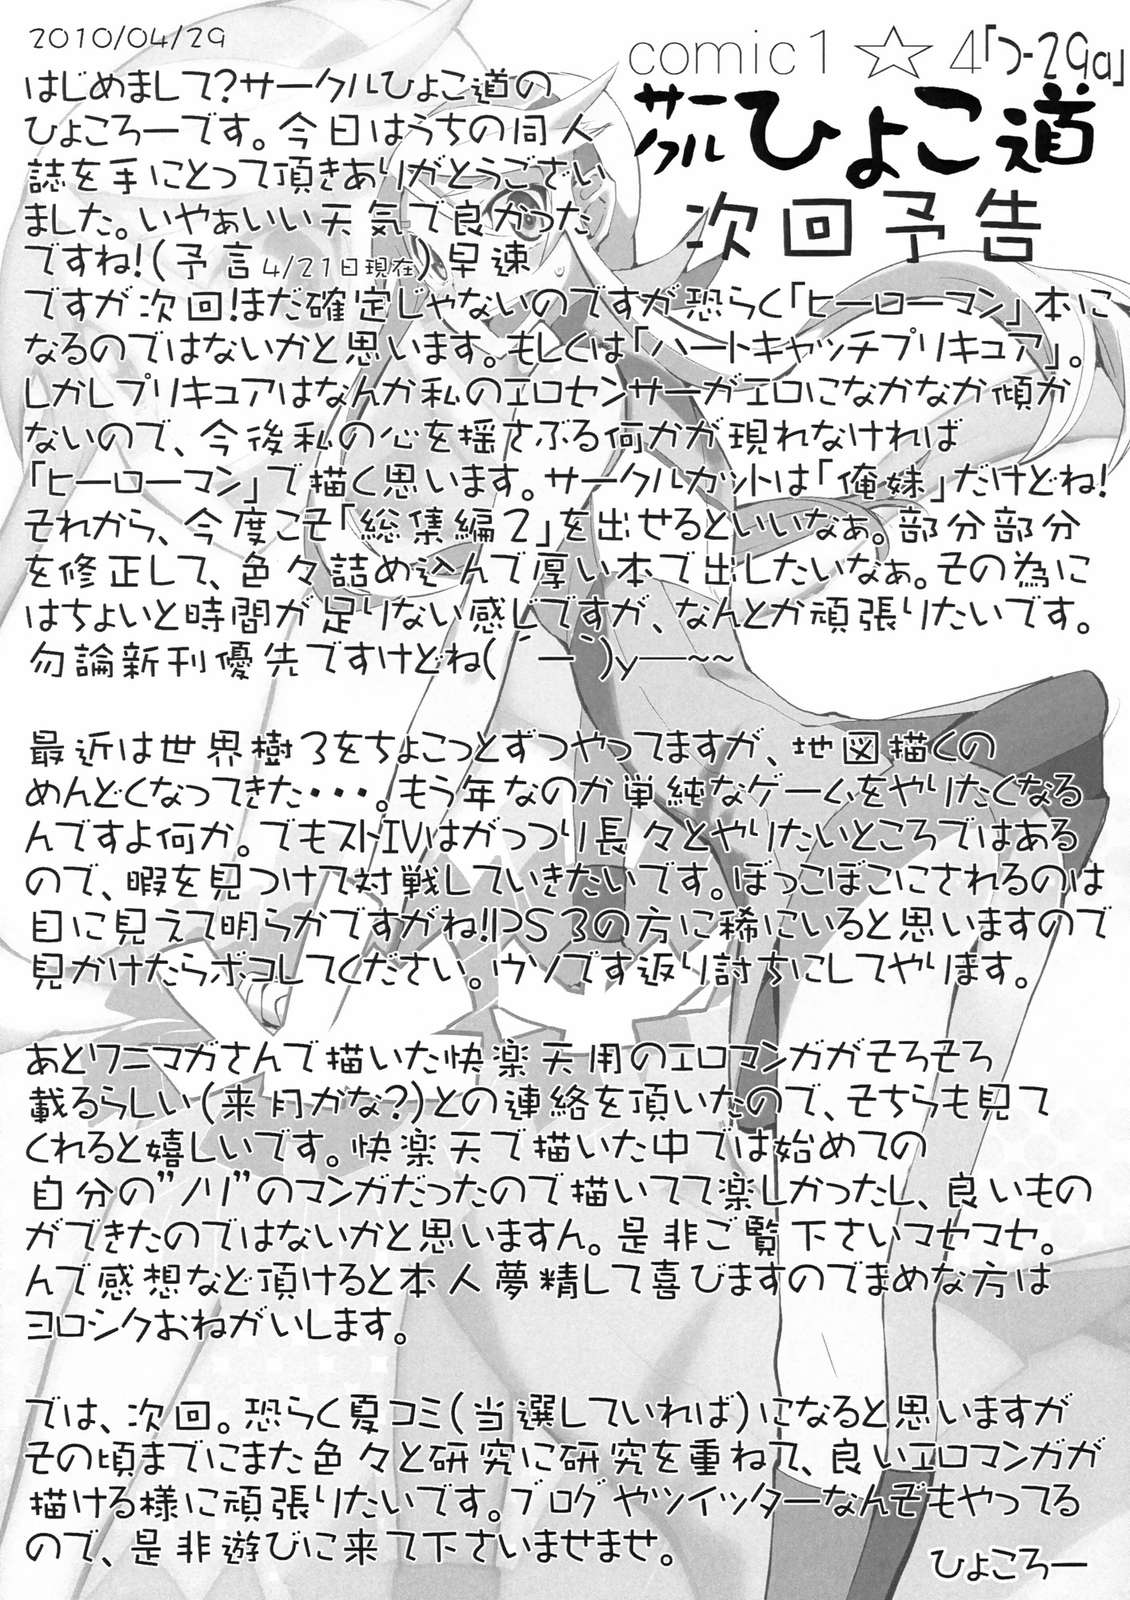 2010/04/29
comic1 ☆ 4「つ-29a」
サークルひよこ道
次回予告
はじめまして?サークルひよこ道の
ひよころーです。今日はうちの同人
誌を手にとって頂きありがとうござい
ました。いやぁいい天気で良かった
ですね!(予言4/21日現在)早速
ですが次回!まだ確定じゃないのですが恐らく「ヒーローマン」本に
なるのではないかと思います。もしくは「ハートキャッチプリキュア」。
しかしプリキュアはなんか私のエロセンサーがエロになかなか傾か
ないので、今後私の心を揺さぶる何かが現れなければ
「ヒーローマン」で描く思います。サークルカットは「俺妹」だけどね!
それから、今度こそ「総集編2」を出せるといいなぁ。部分部分
を修正して、色々詰め込んで厚い本で出したいなぁ。その為に
はちょいと時間が足りない感じですが、なんとか頑張りたいです。
勿論新刊優先ですけどね(´ー`)y―~~
最近は世界樹3をちょこっとずつやってますが、地図描くの
めんどくなってきた・・・。もう年なのか単純なゲームをやりたくなる
んですよ何か。でもストIVはがっつり長々とやりたいところではある
ので、暇を見つけて対戦していきたいです。ぼっこぼこにされるのは
目に見えて明らかですがね!PS3の方に稀にいると思いますので
見かけたらボコしてください。ウソです返り討ちにしてやります。
あとワニマガさんで描いた快楽天用のエロマンガがそろそろ
載るらしい(来月かな?)との連絡を頂いたので、そちらも見て
くれると嬉しいです。快楽天で描いた中では始めての
自分の”ノリ”のマンガだったので描いてて楽しかったし、良いもの
ができたのではないかと思いますん。是非ご覧下さいマセマセ。
んで感想など頂けると本人夢精して喜びますのでまめな方は
ヨロシクおねがいします。
では、次回。恐らく夏コミ(当選していれば)になると思いますが
その頃までにまた色々と研究に研究を重ねて、良いエロマンガが
描ける様に頑張りたいです。ブログやツイッターなんぞもやってる
ので、是非遊びに来て下さいませませ。
ひよころー